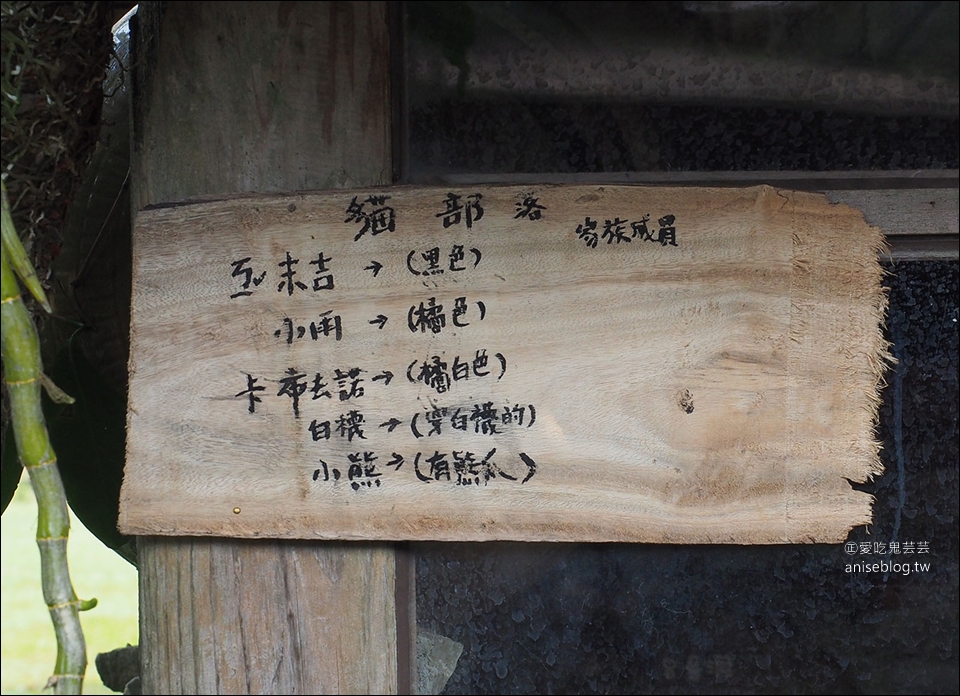 貓部落 家族成員
末吉→(黑色)
小雨→(橘色)
卡布去諾→(橘白色)
白襪→(穿白襪的)
小熊→(有熊爪)
愛吃鬼芸芸
aniseblog.tw